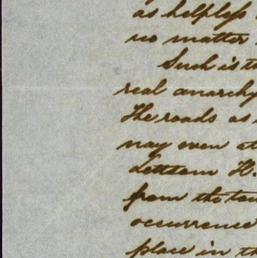 as helpless
no matter
Such is t
real anarchy
The roads as
nay even at
Settlem H.
from the tow
occurrence
place in th